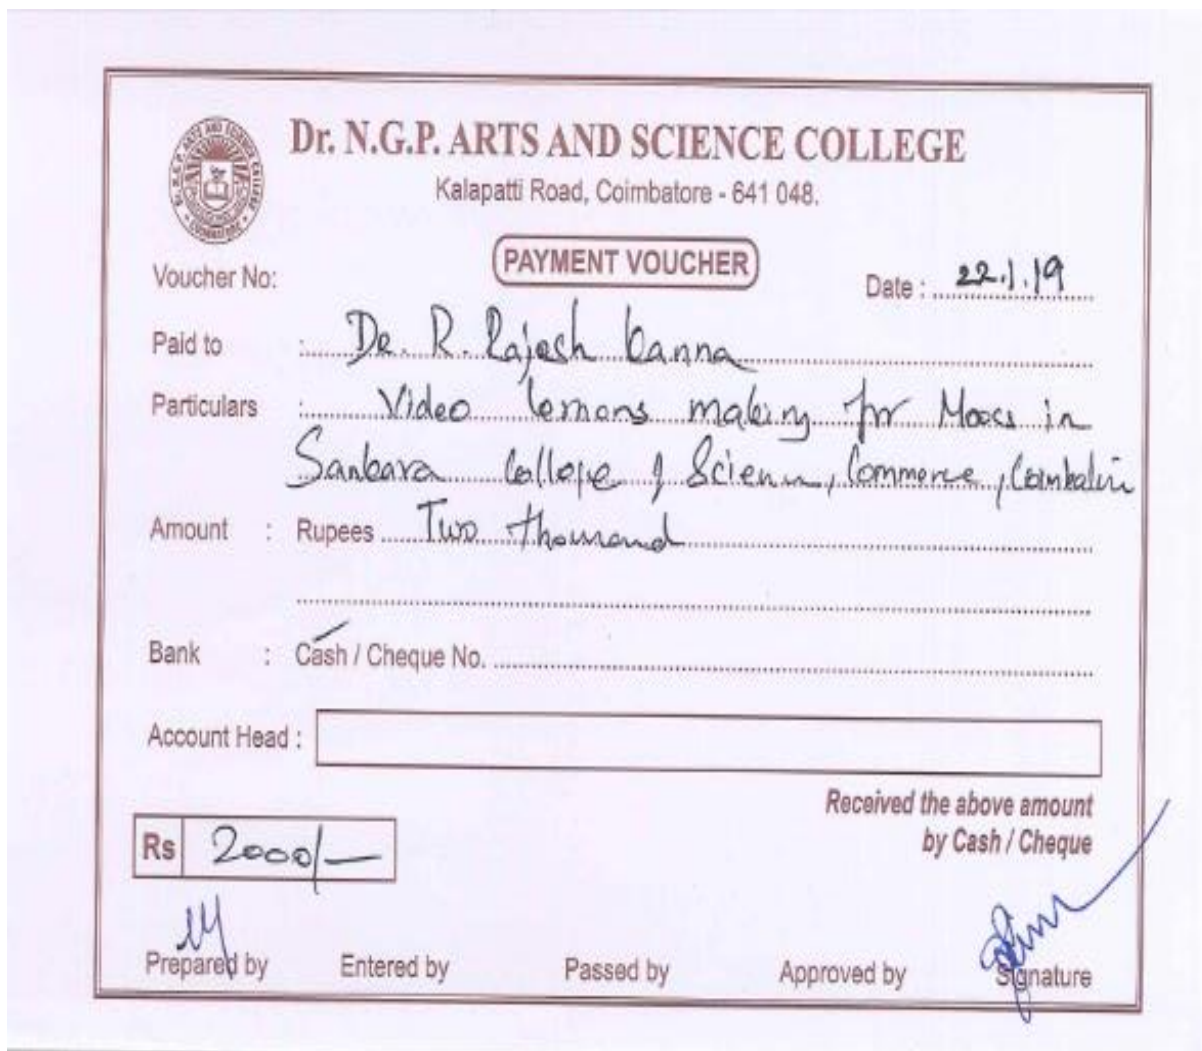 Dr. N.G.P. ARTS AND SCIENCE COLLEGE
Kalapatti Road, Coimbatore - 641 048.
PAYMENT VOUCHER
Voucher No:
Date : 22.1.19
Paid to : Dr. R. Rajesh Kanna
Particulars : Video making for Moocs in
Sankara College of Science, Commerce, Coimbatore
Amount : Rupees Two thousand
Bank : Cash / Cheque No.
Account Head :
Received the above amount
by Cash / Cheque
Rs 2000/-
Prepared by Entered by Passed by Approved by Signature